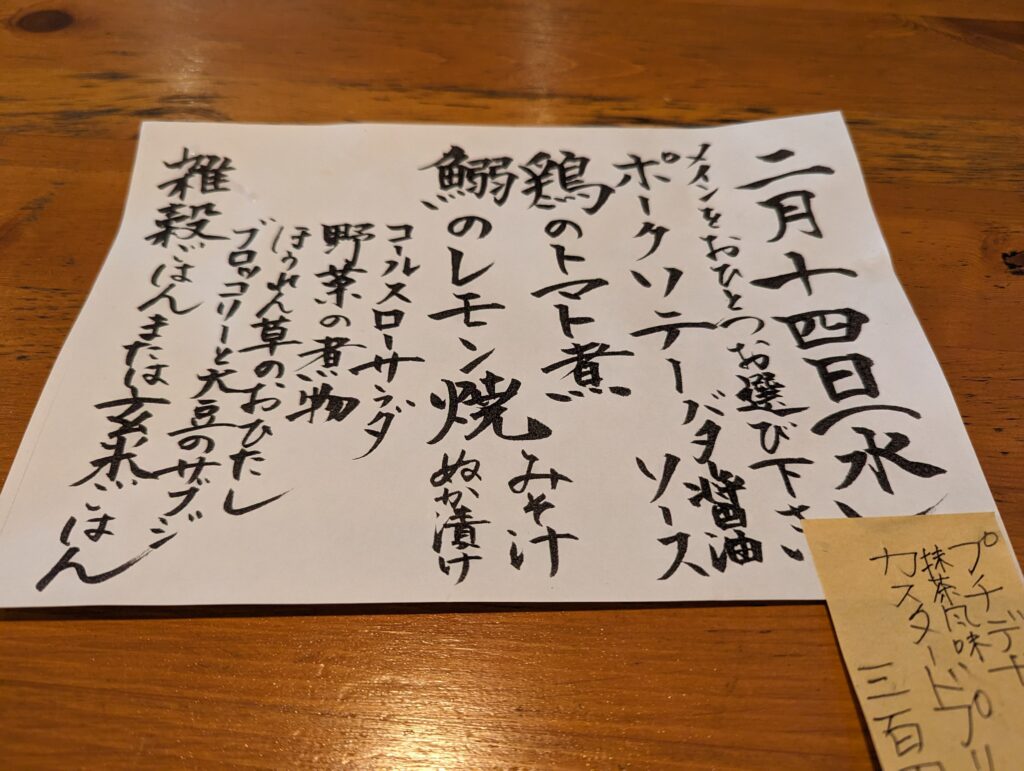 二月十四日(水)
メインをおひとつお選び下さい
ポークソテーバター醤油
ソース
鶏のトマト煮
みそ汁
鰯のレモン焼
ぬか漬け
コールスローサラダ
野菜の煮物
ほうれん草のおひたし
ブロッコリーと大豆のサブジ
雑穀ごはんまたは玄米ごはん
プチデ
抹茶風味
カスタードプリ
三百